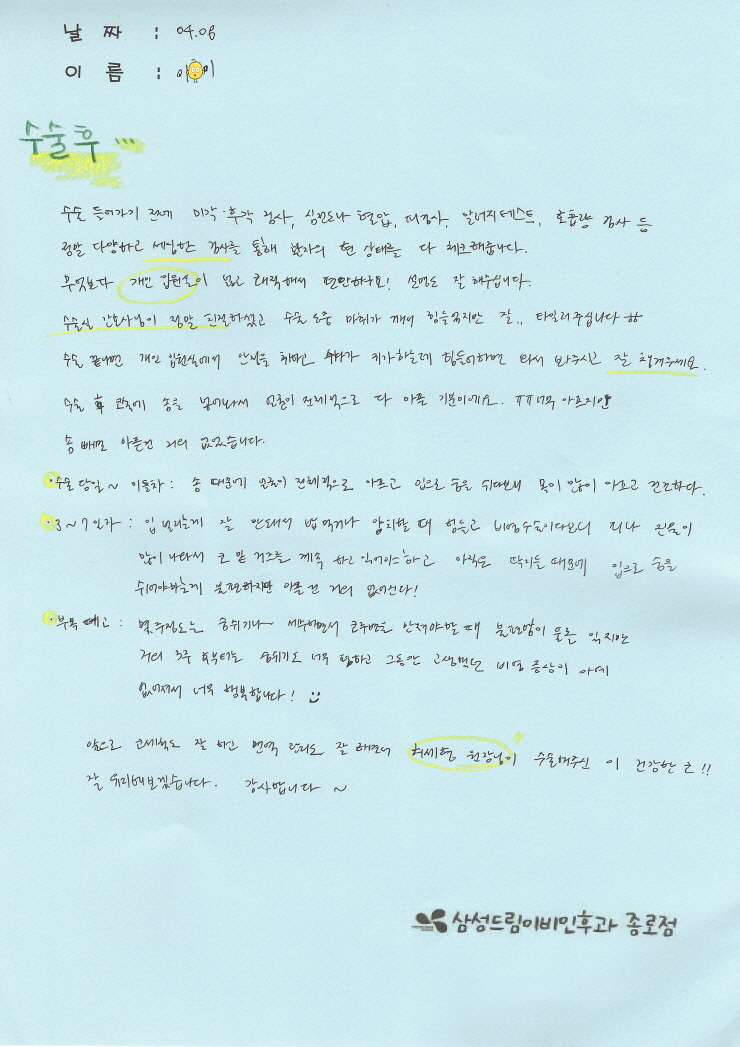 날 짜 : 04.08
이 름 : 이 이
수술후 ...
수술 들어가기 전에 미각·후각 검사, 심전도나 혈압, 피검사, 알러지테스트, 호흡량 검사 등
정말 다양하고 세심한 검사를 통해 환자의 현 상태를 다 체크해줍니다.
무엇보다 개인 입원실이 넓고 쾌적해서 편안하구요! 설명도 잘 해주십니다.
수술실 간호사님이 정말 친절하셨고 수술 도중 마취가 깨서 힘들었지만 잘.. 타일러주십니다 ㅎㅎ
수술 끝나면 개인 입원실에서 안정을 취하고 힘들어하면 와서 봐주시고 잘 챙겨주세요.
수술 후 콧속에 솜을 넣어놔서 얼굴이 전체적으로 다 아픈 기분이에요. ㅠㅠ 너무 아프지만
솜 빼면 아픈건 거의 없었습니다.
·수술 당일~ 이틀차 : 솜 때문에 얼굴이 전체적으로 아프고 입으로 숨을 쉬다보니 목이 많이 아프고 건조하다.
·3~7일차 : 입 벌리는게 잘 안돼서 밥 먹거나 양치할 때 힘들고 비염수술이다보니 피나 진물이
많이 나와서 코 밑 거즈를 계속 하고 있어야 하고 아직은 딱지들 때문에 입으로 숨을
쉬어야하는게 불편하지만 아픈 건 거의 없어진다!
·부목 빼고 : 몇주정도는 숨쉬기나 세수하면서 코주변을 만져야할 때 불편함이 물론 있지만
거의 3주 후부터는 숨쉬기도 너무 편하고 그동안 고생했던 비염 증상이 아예
없어져서 너무 행복합니다!
앞으로 코세척도 잘 하고 면역 관리도 잘 해서 허세형 원장님이 수술해주신 이 건강한 코!!
잘 유지해보겠습니다. 감사합니다 ~
삼성드림이비인후과 종로점